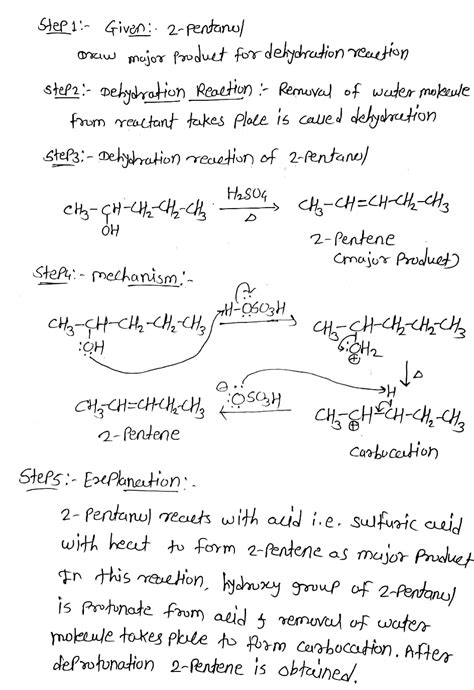 Step1:- Given:- 2-Pentanol
Draw major Product for dehydration reaction
Step2:- Dehydration Reaction :- Removal of water molecule
from reactant takes place is called dehydration
Step3:- Dehydration reaction of 2-Pentanol
CH3-CH-CH2-CH2-CH3 H2SO4 CH3-CH=CH-CH2-CH3
OH Δ
2-Pentene
(major Product)
Step4:- mechanism:-
CH3-CH-CH2-CH2-CH3 H-OSO3H CH3-CH-CH2-CH2-CH3
:OH :OH2
⊕
Δ
⊖ H
CH3-CH=CHCH2-CH3 :OSO3H CH3-CH-CH-CH2-CH3
2-Pentene ⊕
Carbocation
Step5:- Explanation:-
2-Pentanol reacts with acid i.e. sulfuric acid
with heat to form 2-Pentene as major Product
In this reaction, hydroxy group of 2-Pentanol
is Protonate from acid & removal of water
molecule takes place to form carbocation. After
deprotonation 2-Pentene is obtained.